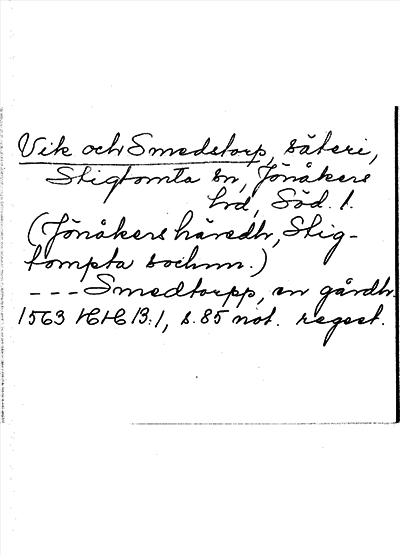 Vik och Smedstorp, säteri,
Stigtomta sn, Jönåkers
hd, Söd. l.
(Jönåkers häredh, Stig-
tompta sochnn.)
--- Smedtorpp, en gårdh.
1563 HH B:1, s. 85 not. regest.